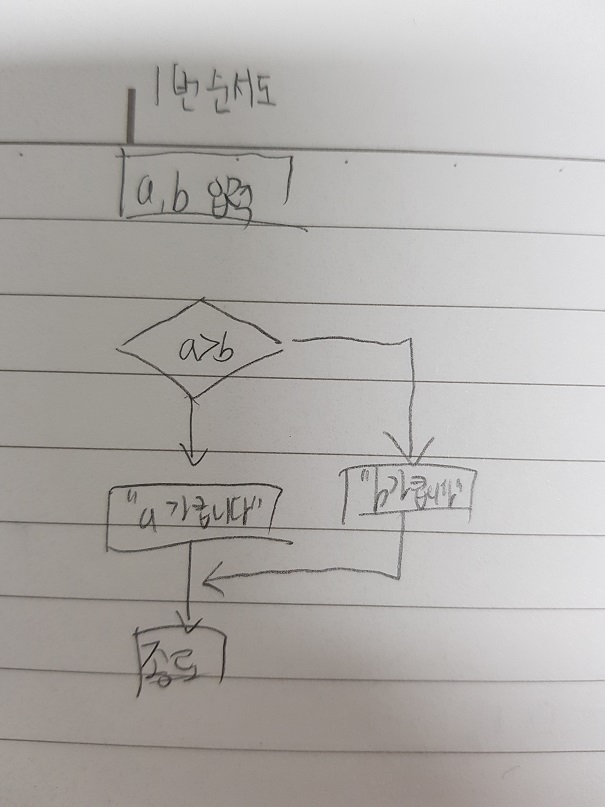 1번 순서도
a, b 입력
a>b
"a가 큽니다"
"b가 큽니다"
종료